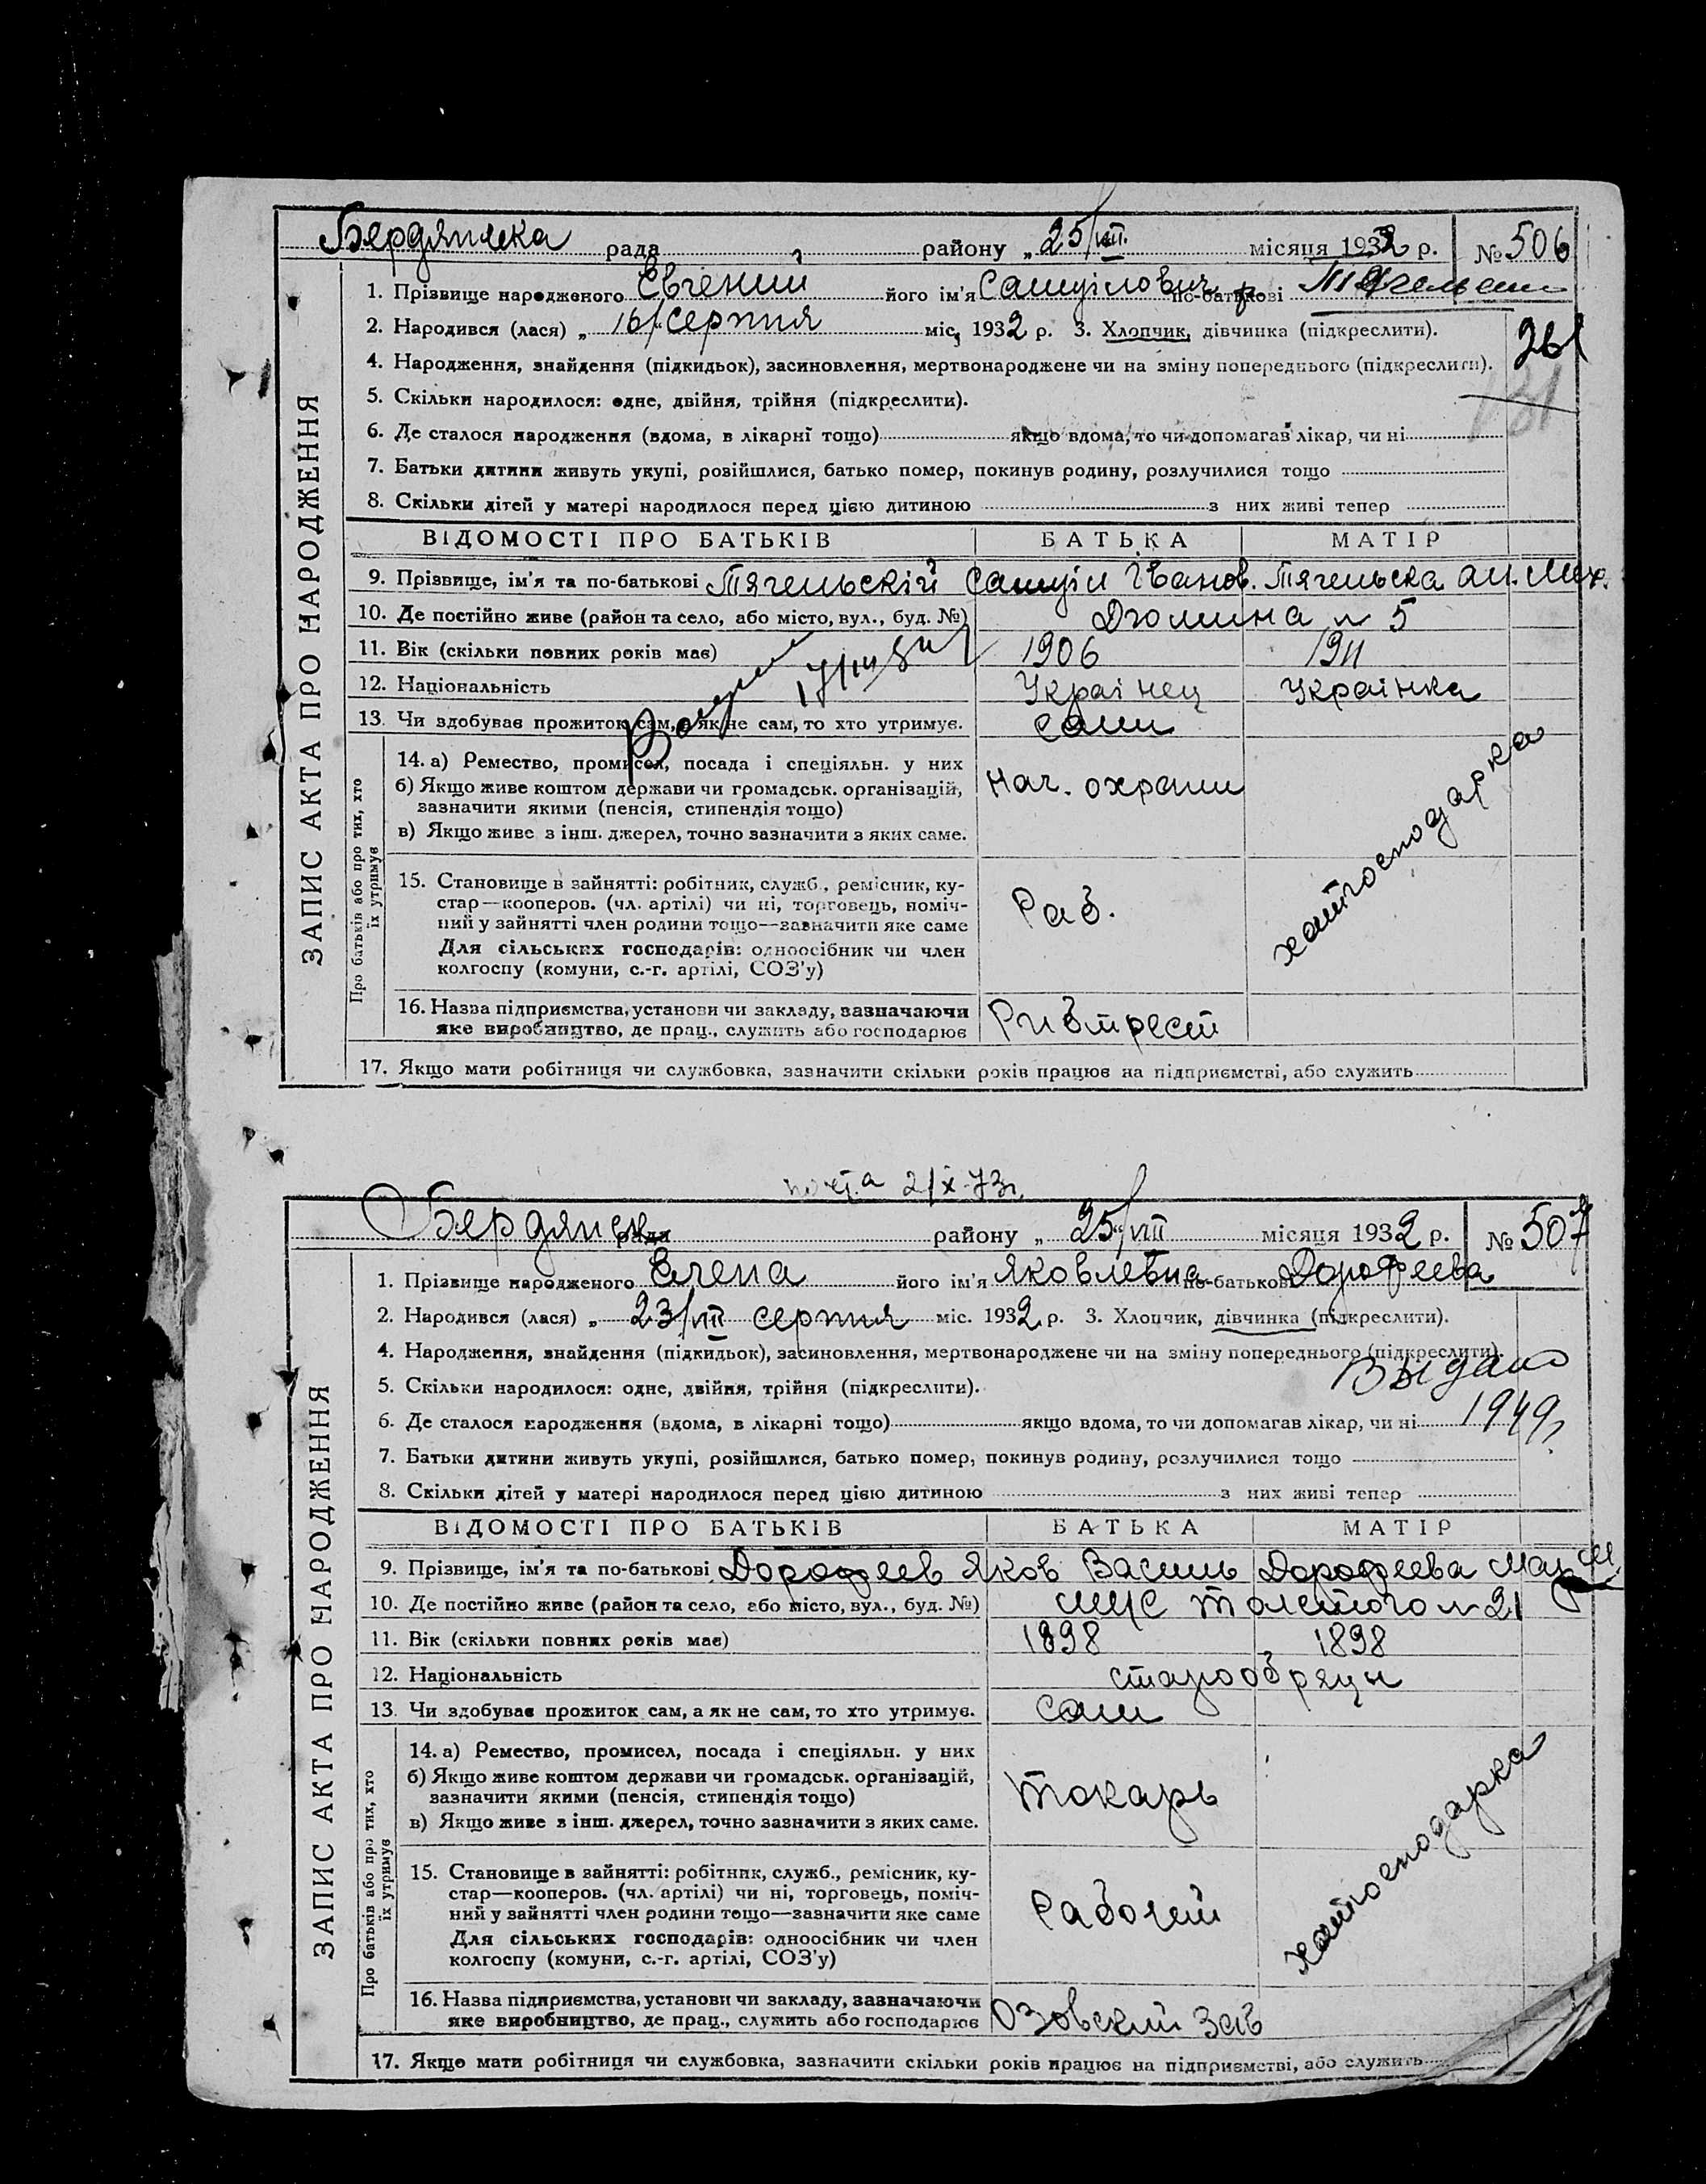 ЗАПИС АКТА ПРО НАРОДЖЕННЯ
Бердянска рада району „25/VIII місяця 1932 р. № 506
1. Прізвище народженого Евгений його ім'я Самуілович по-батькові
2. Народився (лася) „ 16/ серпня міс, 1932 р. 3. Хлопчик, дівчинка (підкреслити).
4. Народження, знайдення (підкидьок), засиновлення, мертвонароджене чи на зміну попереднього (підкреслити).
5. Скільки народилося: одне, двійня, трійня (підкреслити).
6. Де сталося народження (вдома, в лікарні тощо) якщо вдома, то чи допомагав лікар, чи ні
7. Батьки дитини живуть укупі, розійшлися, батько помер, покинув родину, розлучилися тощо
8. Скільки дітей у матері народилося перед цією дитиною з них живі тепер
ВІДОМОСТІ ПРО БАТЬКІВ БАТЬКА МАТІР
9. Прізвище, ім'я та по-батькові Тягельскій Самуіл Іванов. Тягельска Ан. Мих.
10. Де постійно живе (район та село, або місто, вул., буд. №) Дюмина № 5
11. Вік (скільки повних років має) 1906 1911
12. Національність Украінец Украінка
13. Чи здобуває прожиток сам, а як не сам, то хто утримує. Сам
Про батьків або про тих, хто їх утримує
14. а) Ремество, промисел, посада і спеціяльн. у них
б) Якщо живе коштом держави чи громадськ. організацій,
зазначити якими (пенсія, стипендія тощо)
в) Якщо живе з інш. джерел, точно зазначити з яких саме.
Нач. охрани
хатгосподарка
15. Становище в зайнятті: робітник, служб., ремісник, ку-
стар—кооперов. (чл. артілі) чи ні, торговець, поміч-
ний у зайнятті член родини тощо—зазначити яке саме
Для сільських господарів: одноосібник чи член
колгоспу (комуни, с.-г. артілі, СОЗ'у)
Раб.
16. Назва підприємства, установи чи закладу, зазначаючи
яке виробництво, де прац., служить або господарює
Рибтрест
17. Якщо мати робітниця чи службовка, зазначити скільки років працює на підприємстві, або служить
2/X-73г.
ЗАПИС АКТА ПРО НАРОДЖЕННЯ
Бердянск рада району „25/VIII місяця 1932 р. № 507
1. Прізвище народженого Елена його ім'я Яковлевна по-батькові Дорофеева
2. Народився (лася) „ 23/VIII серпня міс. 1932 р. 3. Хлопчик, дівчинка (підкреслити).
4. Народження, знайдення (підкидьок), засиновлення, мертвонароджене чи на зміну попереднього (підкреслити).
Выдано
5. Скільки народилося: одне, двійня, трійня (підкреслити).
6. Де сталося народження (вдома, в лікарні тощо) якщо вдома, то чи допомагав лікар, чи ні 1949г.
7. Батьки дитини живуть укупі, розійшлися, батько помер, покинув родину, розлучилися тощо
8. Скільки дітей у матері народилося перед цією дитиною з них живі тепер
ВІДОМОСТІ ПРО БАТЬКІВ БАТЬКА МАТІР
9. Прізвище, ім'я та по-батькові Дорофеев Яков Василь Дорофеева Мар
10. Де постійно живе (район та село, або місто, вул., буд. №) Толстого № 21
11. Вік (скільки повних років має) 1898 1898
12. Національність старообряци
13. Чи здобуває прожиток сам, а як не сам, то хто утримує. Сам
Про батьків або про тих, хто їх утримує
14. а) Ремество, промисел, посада і спеціяльн. у них
б) Якщо живе коштом держави чи громадськ. організацій,
зазначити якими (пенсія, стипендія тощо)
в) Якщо живе з інш. джерел, точно зазначити з яких саме.
Токарь
хатгосподарка
15. Становище в зайнятті: робітник, служб., ремісник, ку-
стар—кооперов. (чл. артілі) чи ні, торговець, поміч-
ний у зайнятті член родини тощо—зазначити яке саме
Для сільських господарів: одноосібник чи член
колгоспу (комуни, с.-г. артілі, СОЗ'у)
Рабочий
16. Назва підприємства, установи чи закладу, зазначаючи
яке виробництво, де прац., служить або господарює
Озовский Зав
17. Якщо мати робітниця чи службовка, зазначити скільки років працює на підприємстві, або служить